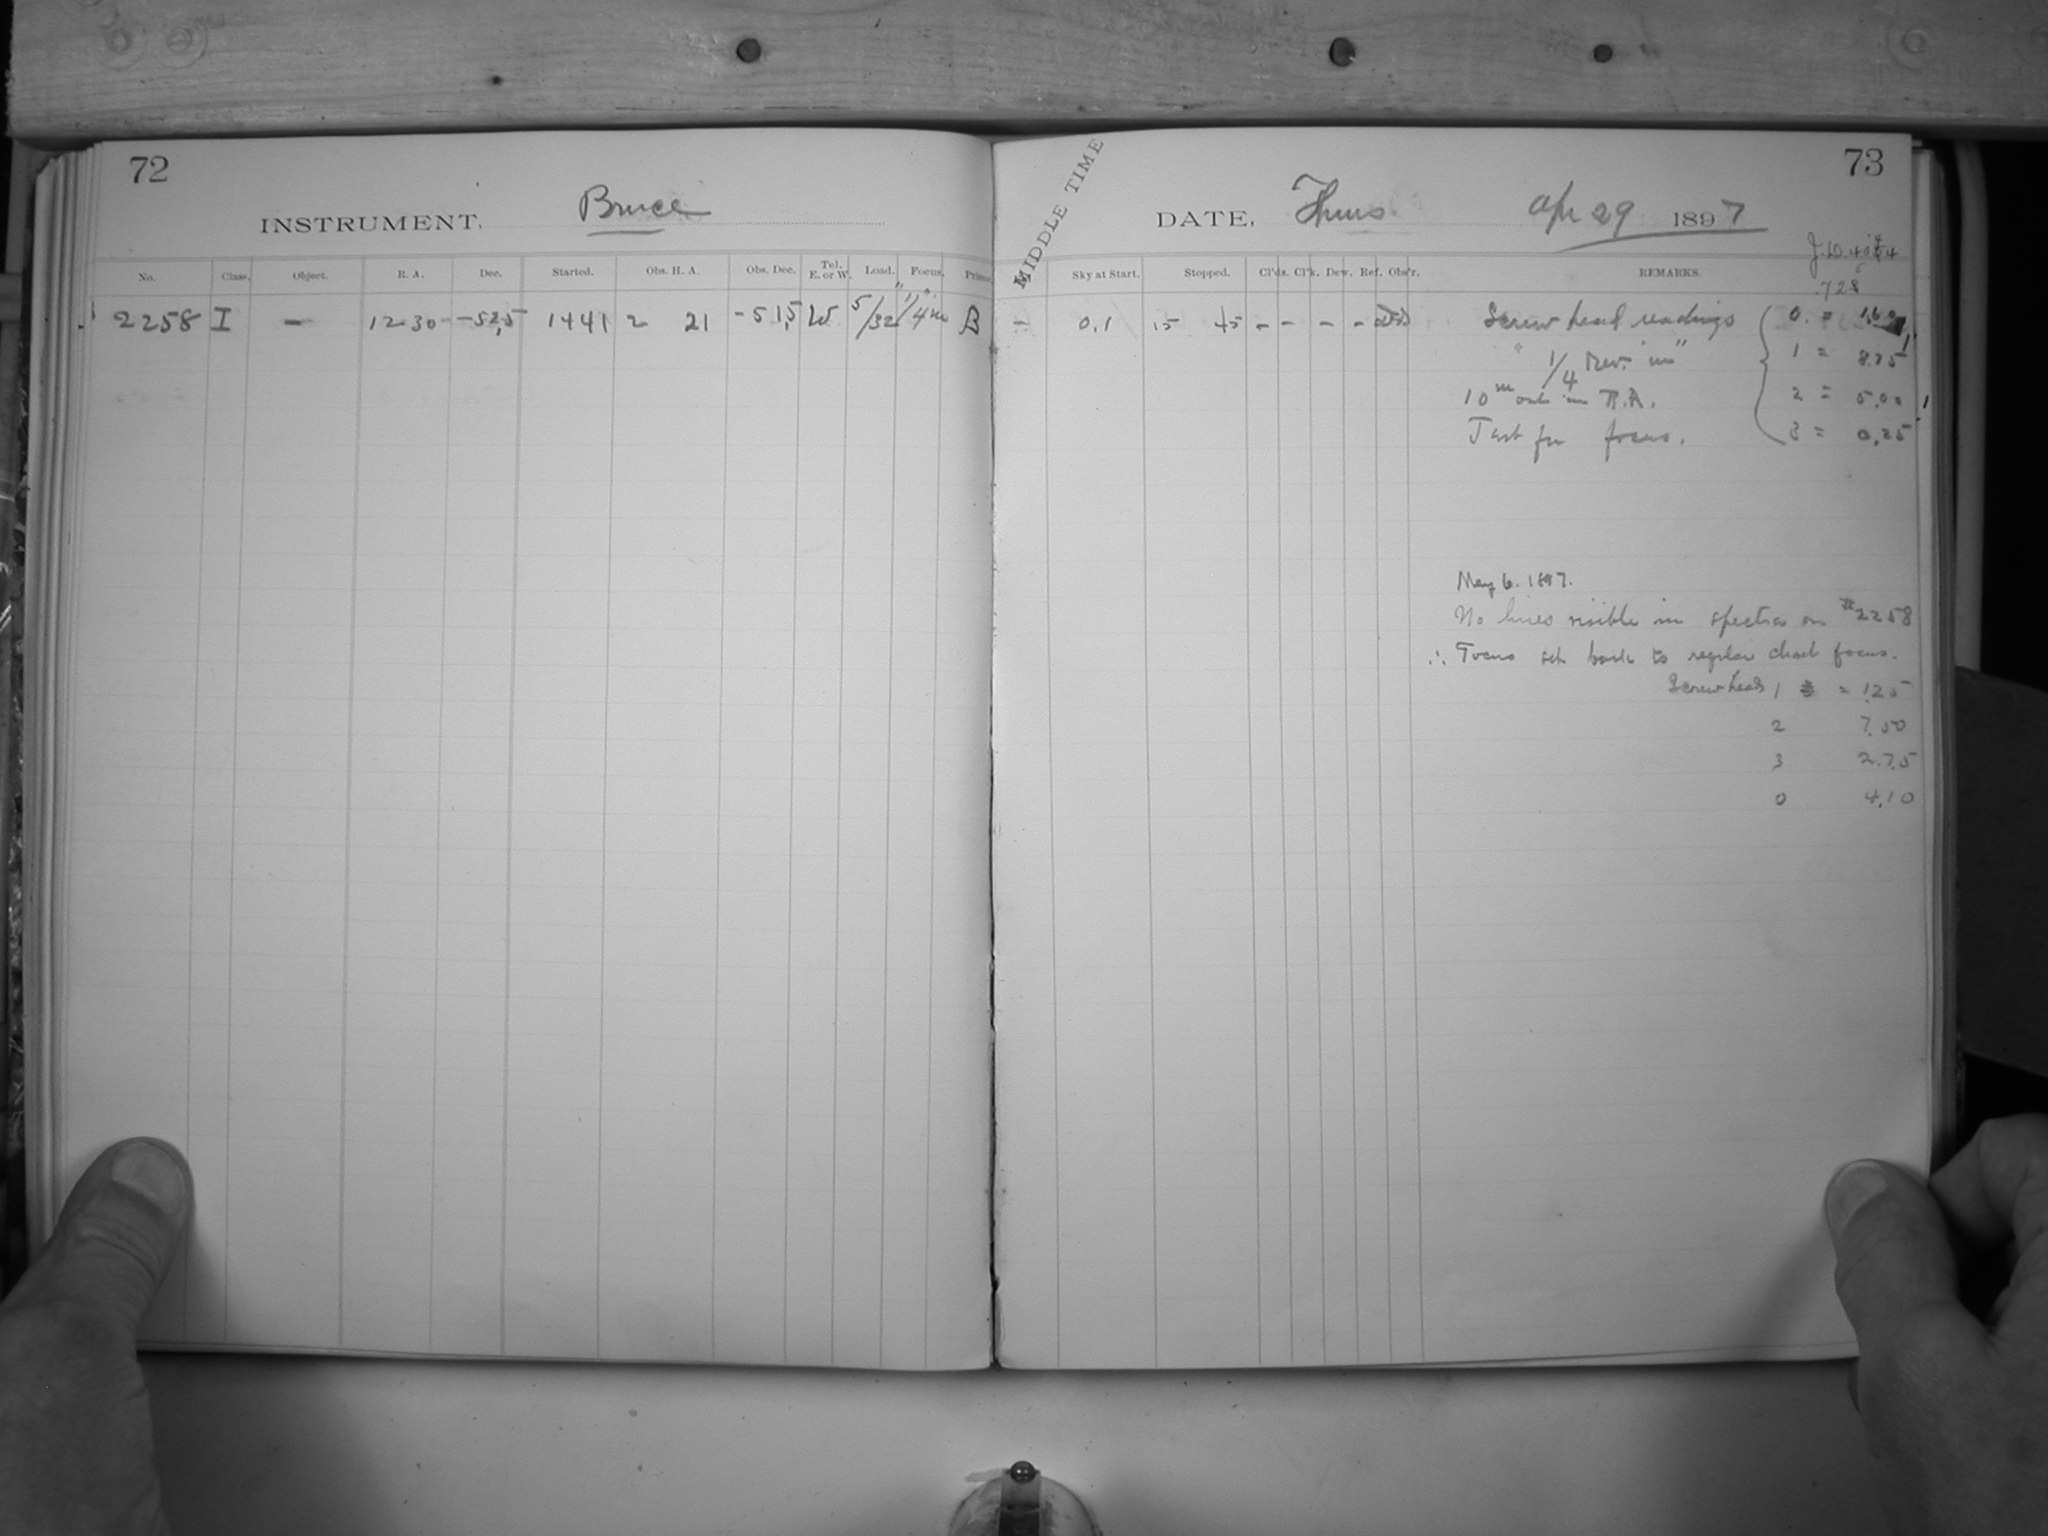 72
INSTRUMENT, Bruce
No. Class. Object. R. A. Dec. Started. Obs. H. A. Obs. Dec. Tel. E. or W. Load. Focus. Prism.
2258 I — 12 30 -52,5 1441 2 21 -51,5 W 5/32 1/4 in B
MIDDLE TIME
73
DATE, Thurs. Apr 29 1897
Sky at Start. Stopped. Cl'ds. Cl'k. Dew. Ref. Obs'r. REMARKS.
728
— 0.1 15 45 - - - - Screw head readings 0. = 1.60
" 1/4 Rev. "in" 1 = 8.75
10m out in R.A. 2 = 5.00
Test for focus. 3 = 0.25
May 6. 1897.
No lines visible in spectra on #2258
∴ Focus set back to regular chart focus.
Screwheads 1 = 1.25
2 7.50
3 2.75
0 4.10